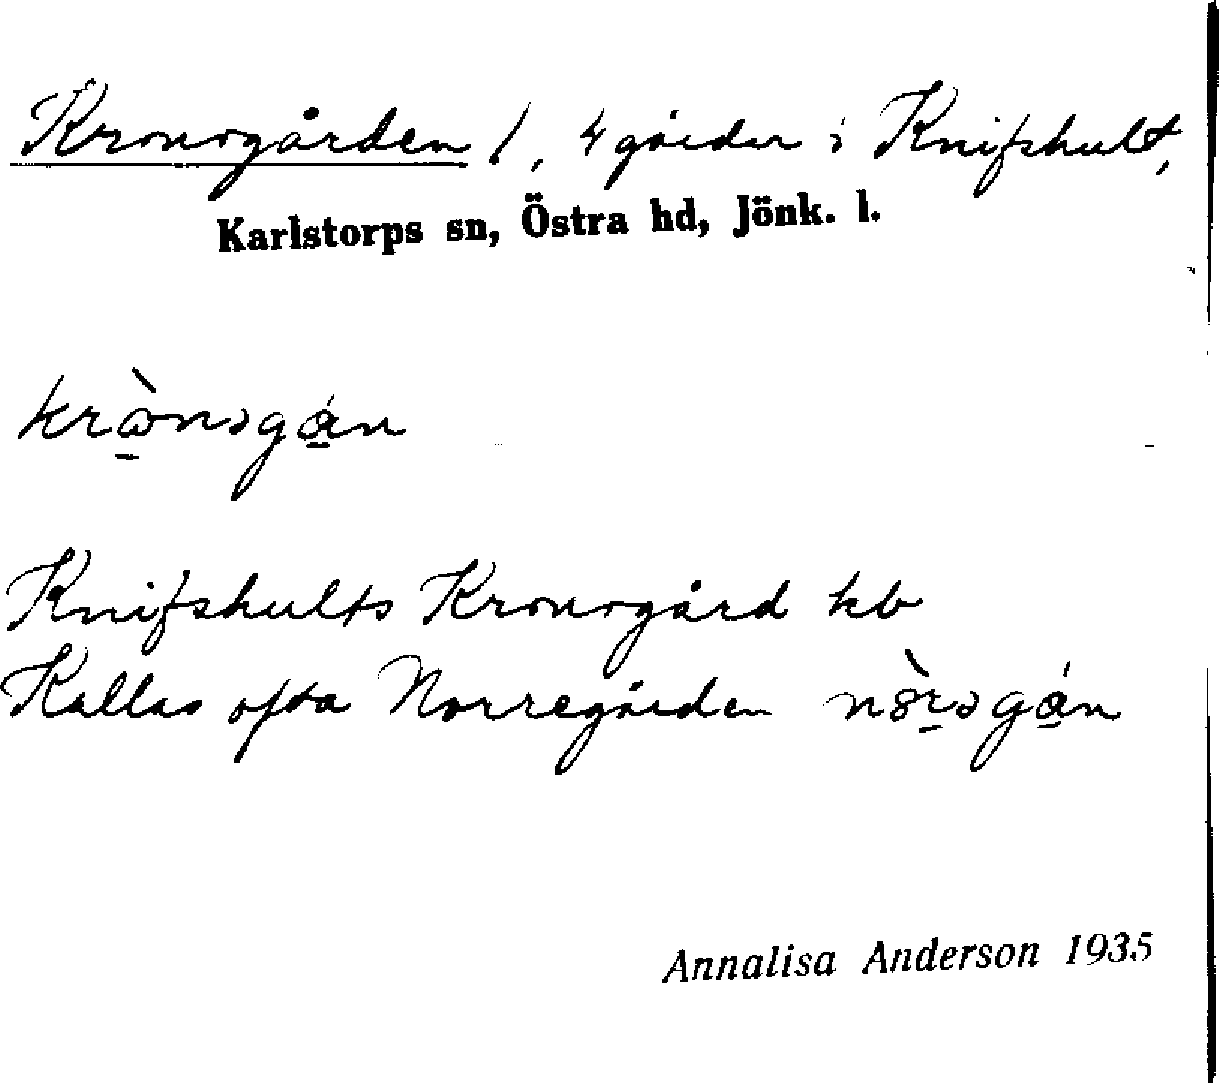 Kronogården /, 4 gårdar i Knifshult,
Karlstorps sn, Östra hd, Jönk. l.
krɷ̀nəgán
Knifshults Kronogård kb
Kallas ofta Norregården nòrəgán
Annalisa Anderson 1935